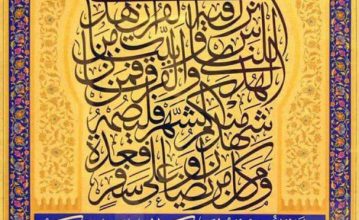 فيه القرآن
للناس وبينت من
الهدى والفرقان فمن
شهد منكم الشهر فليصمه
ومن كان مريضا أو على سفر فعدة